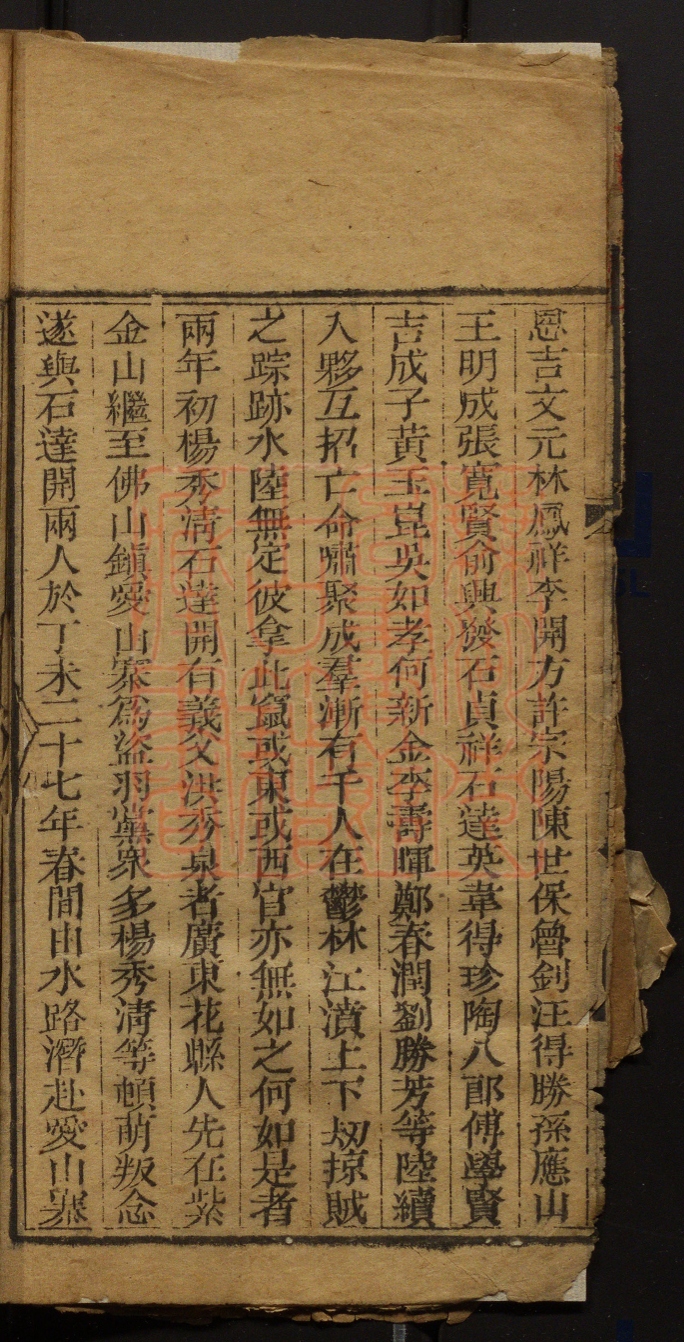 恩吉文元林鳳祥李開方許宗陽陳世保魯釗汪得勝孫應山
王明成張寬賢俞興發石貞祥石達英韋得珍陶八郎傅學賢
吉成子黃玉崑吳如孝何新金李壽暉鄭春潤劉勝芳等陸續
入夥互招亡命嘯聚成羣漸有千人在鬱林江濆上下刼掠賊
之踪跡水陸無定彼拿此竄或東或西官亦無如之何如是者
兩年初楊秀清石達開有義父洪秀泉者廣東花縣人先在紫
金山繼至佛山鎮愛山寨為盜羽黨眾多楊秀清等頓萌叛念
遂與石達開兩人於丁未二十七年春間由水路潛赴愛山寨